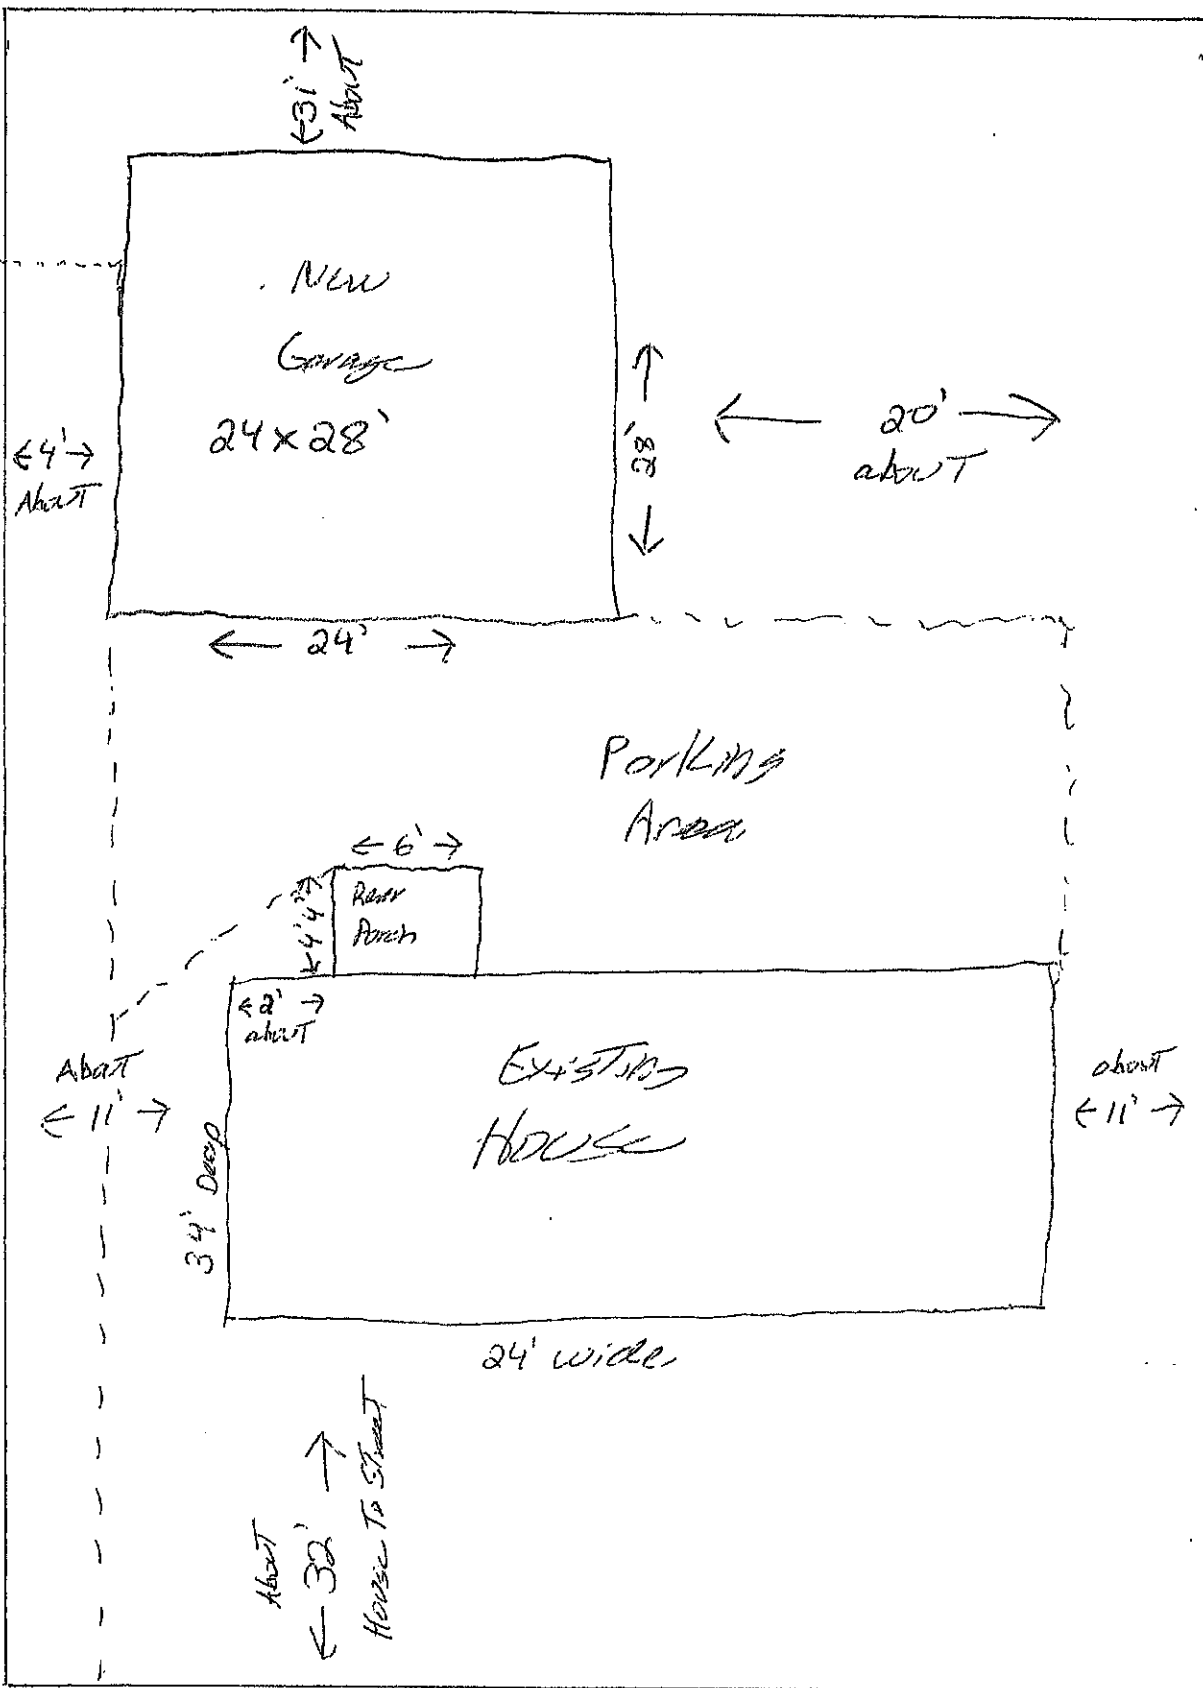 31'
About
New
Garage
24 x 28'
4'
About
28'
20'
about
24'
Parking
Area
6'
Rear
Porch
4'4"
2'
about
Existing
House
About
11'
about
11'
34' Deep
24' wide
About
32'
House To Street